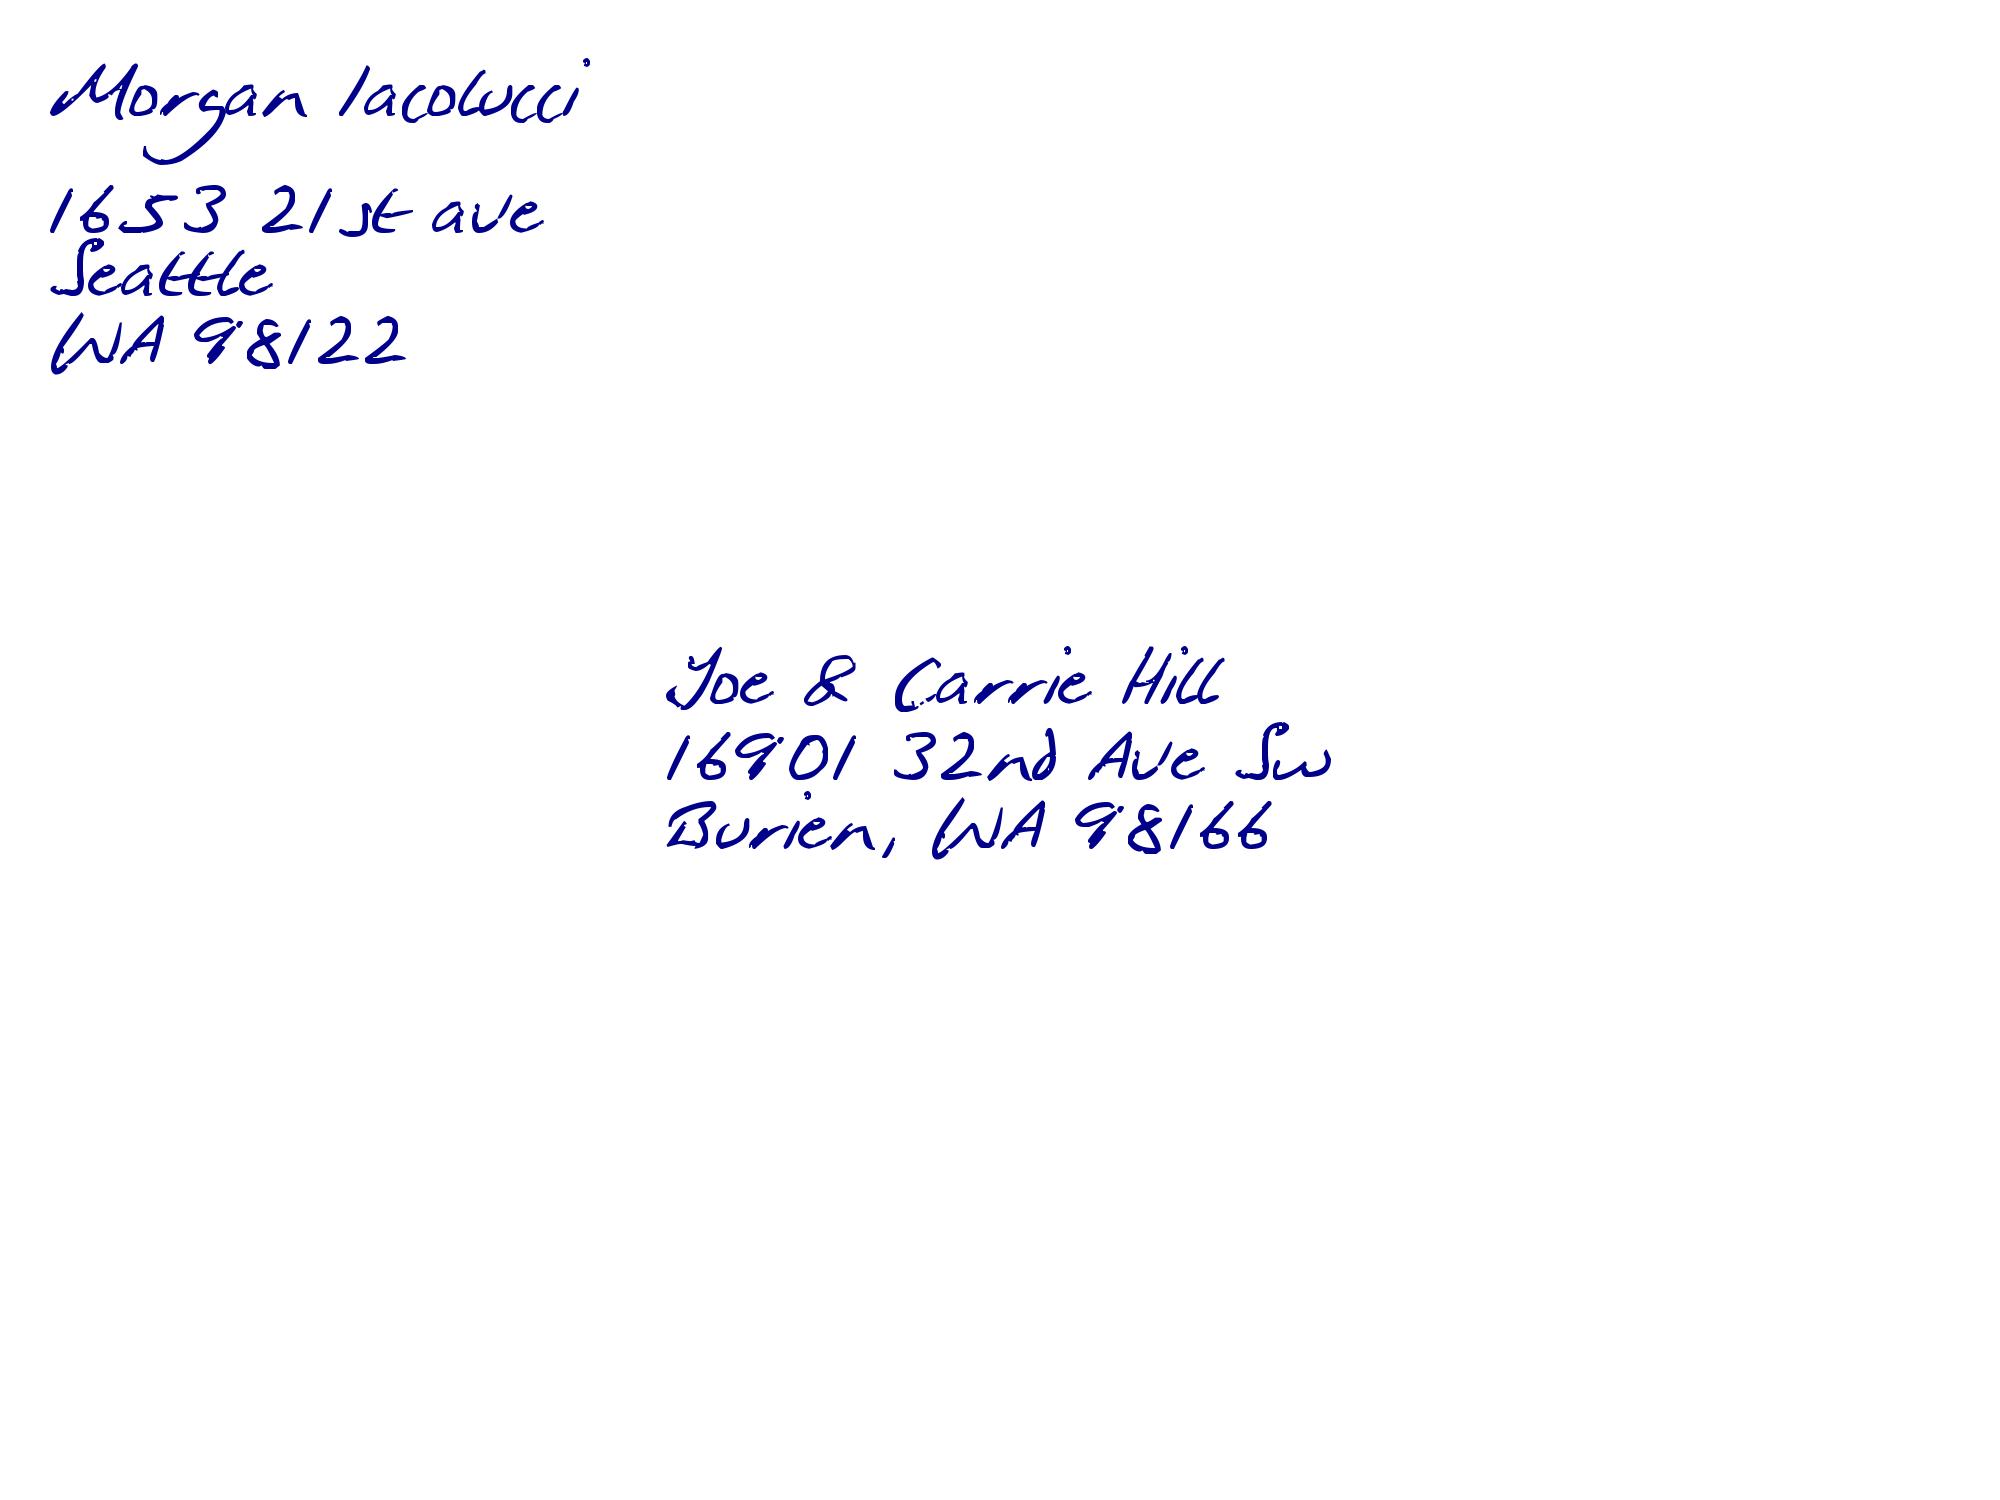 Morgan Iacolucci
1653 21st ave
Seattle
WA 98122
Joe & Carrie Hill
16901 32nd Ave Sw
Burien, WA 98166